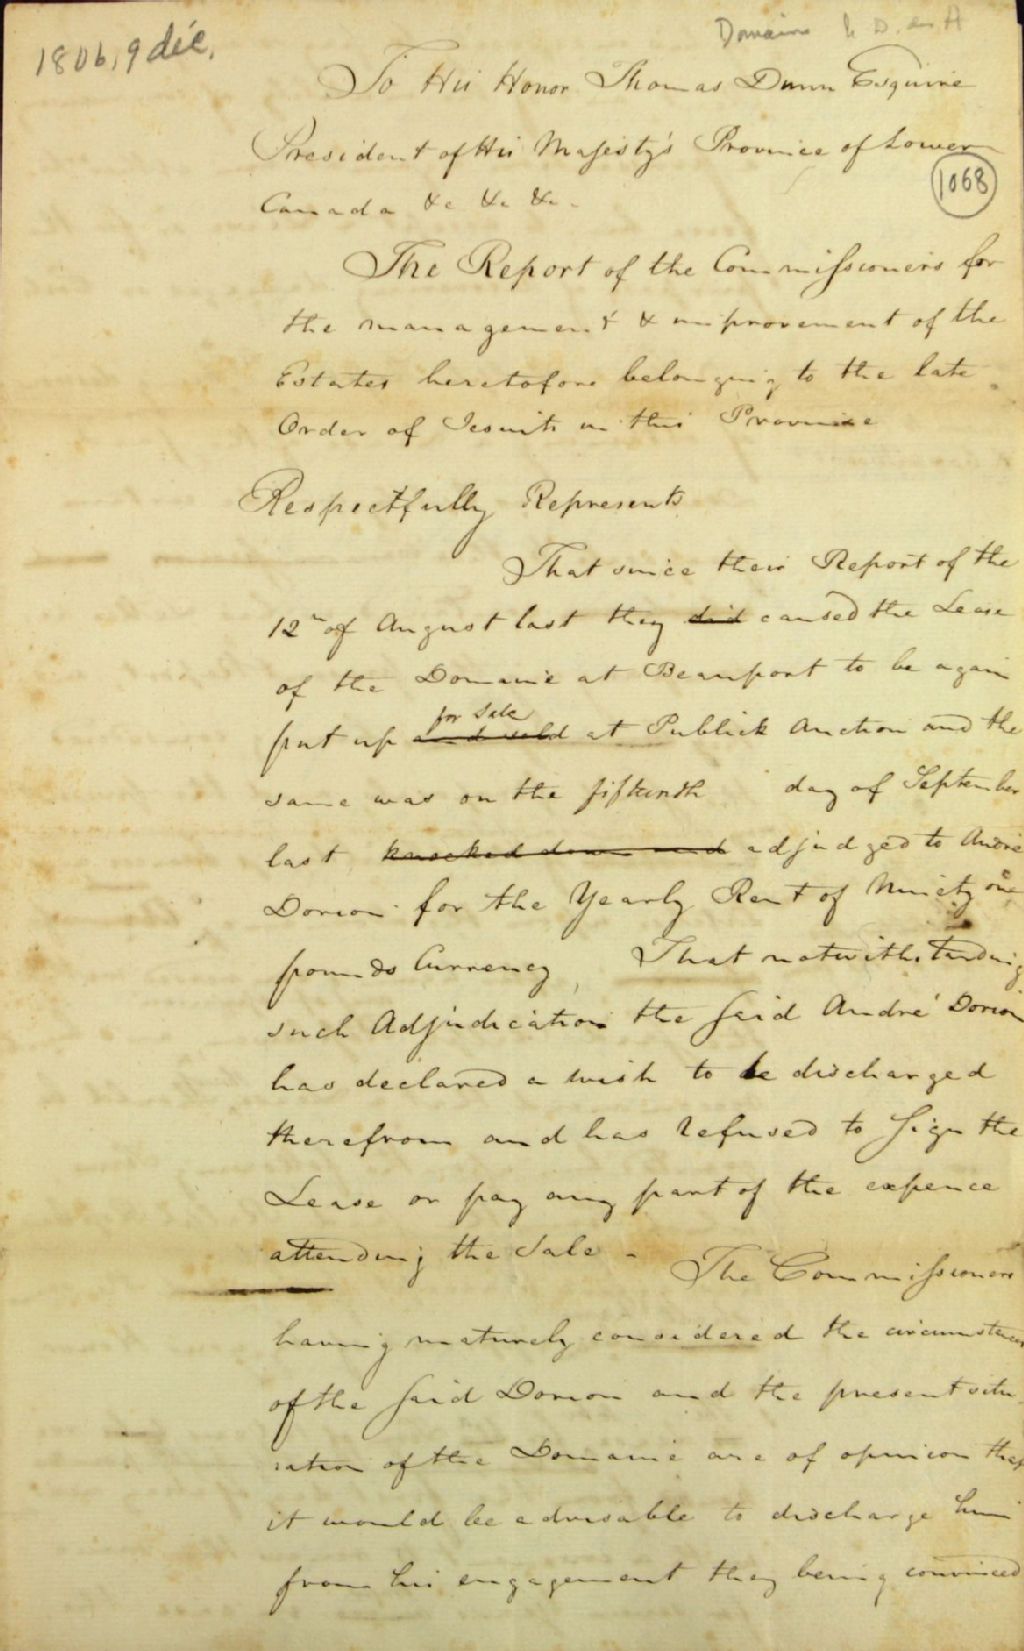 1806, 9 déc.
Domaine
To His Honor Thomas Dunn Esquire
President of His Majesty's Province of Lower
1068
Canada &c &c &c.
The Report of the Commissioners for
the management & improvement of the
Estates heretofore belonging to the late
Order of Jesuits in this Province
Respectfully Represents
That since their Report of the
12th of August last they did caused the Lease
of the Domaine at Beauport to be again
for Sale
put up and sold at Publick Auction and the
same was on the fifteenth day of September
last knocked down and adjudged to André
Dorion for the Yearly Rent of Ninety one
pounds Currency, That notwithstanding
such Adjudication the said André Dorion
has declared a wish to be discharged
therefrom and has refused to sign the
Lease or pay any part of the expence
attending the Sale - The Commissioners
having maturely considered the circumstances
of the said Dorion and the present situ
ation of the Domaine are of opinion that
it would be advisable to discharge him
from his engagement they being convinced